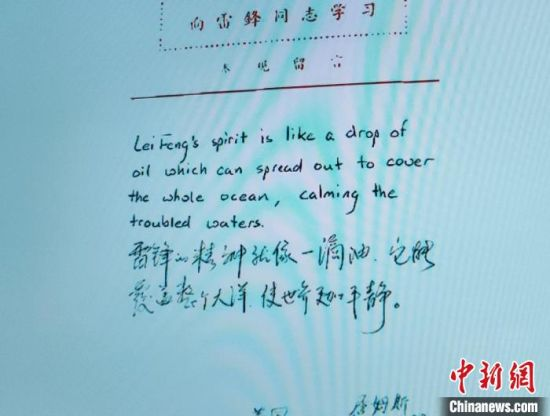 向雷鋒同志学习
来观留言
Lei Feng's spirit is like a drop of
oil which can spread out to cover
the whole ocean, calming the
troubled waters.
雷锋的精神就像一滴油，它能
覆盖整个大洋，使世界更加平静。
美国 詹姆斯
中新网
Chinanews.com